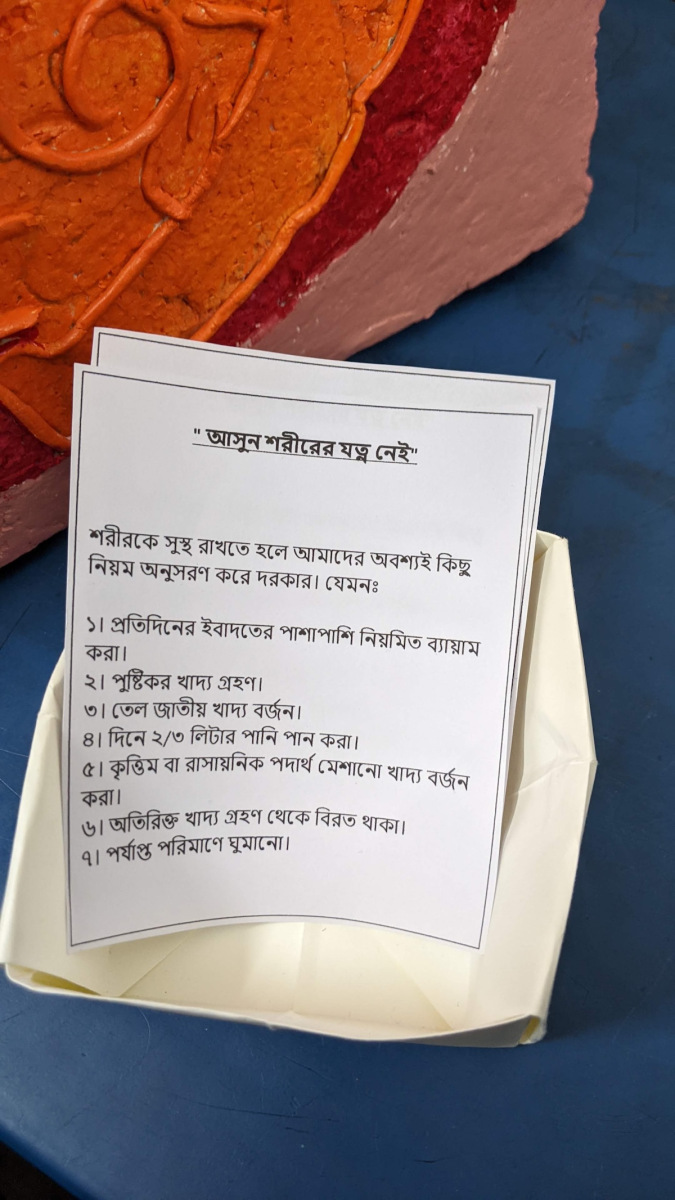 " আসুন শরীরের যত্ন নেই"
শরীরকে সুস্থ রাখতে হলে আমাদের অবশ্যই কিছু
নিয়ম অনুসরণ করে দরকার। যেমনঃ
১। প্রতিদিনের ইবাদতের পাশাপাশি নিয়মিত ব্যায়াম
করা।
২। পুষ্টিকর খাদ্য গ্রহণ।
৩। তেল জাতীয় খাদ্য বর্জন।
৪। দিনে ২/৩ লিটার পানি পান করা।
৫। কৃত্তিম বা রাসায়নিক পদার্থ মেশানো খাদ্য বর্জন
করা।
৬। অতিরিক্ত খাদ্য গ্রহণ থেকে বিরত থাকা।
৭। পর্যাপ্ত পরিমাণে ঘুমানো।